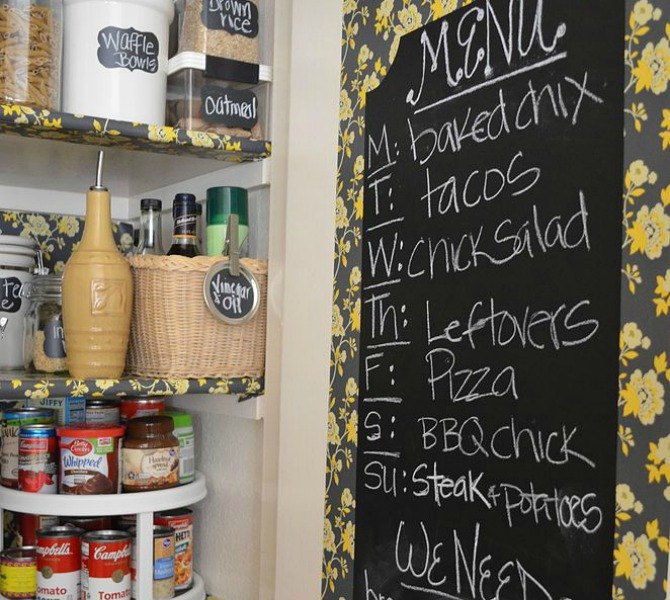 Brown
rice
Waffle
Bowls
Oatmeal
Vinegar
Oil
JIFFY
Betty
Crocker
Whipped
Campbell's
Tomato
Campbell's
MENU
M: baked chix
T: tacos
W: chick Salad
Th: Leftovers
F: Pizza
S: BBQ chick
SU: Steak + potatoes
WE NEED